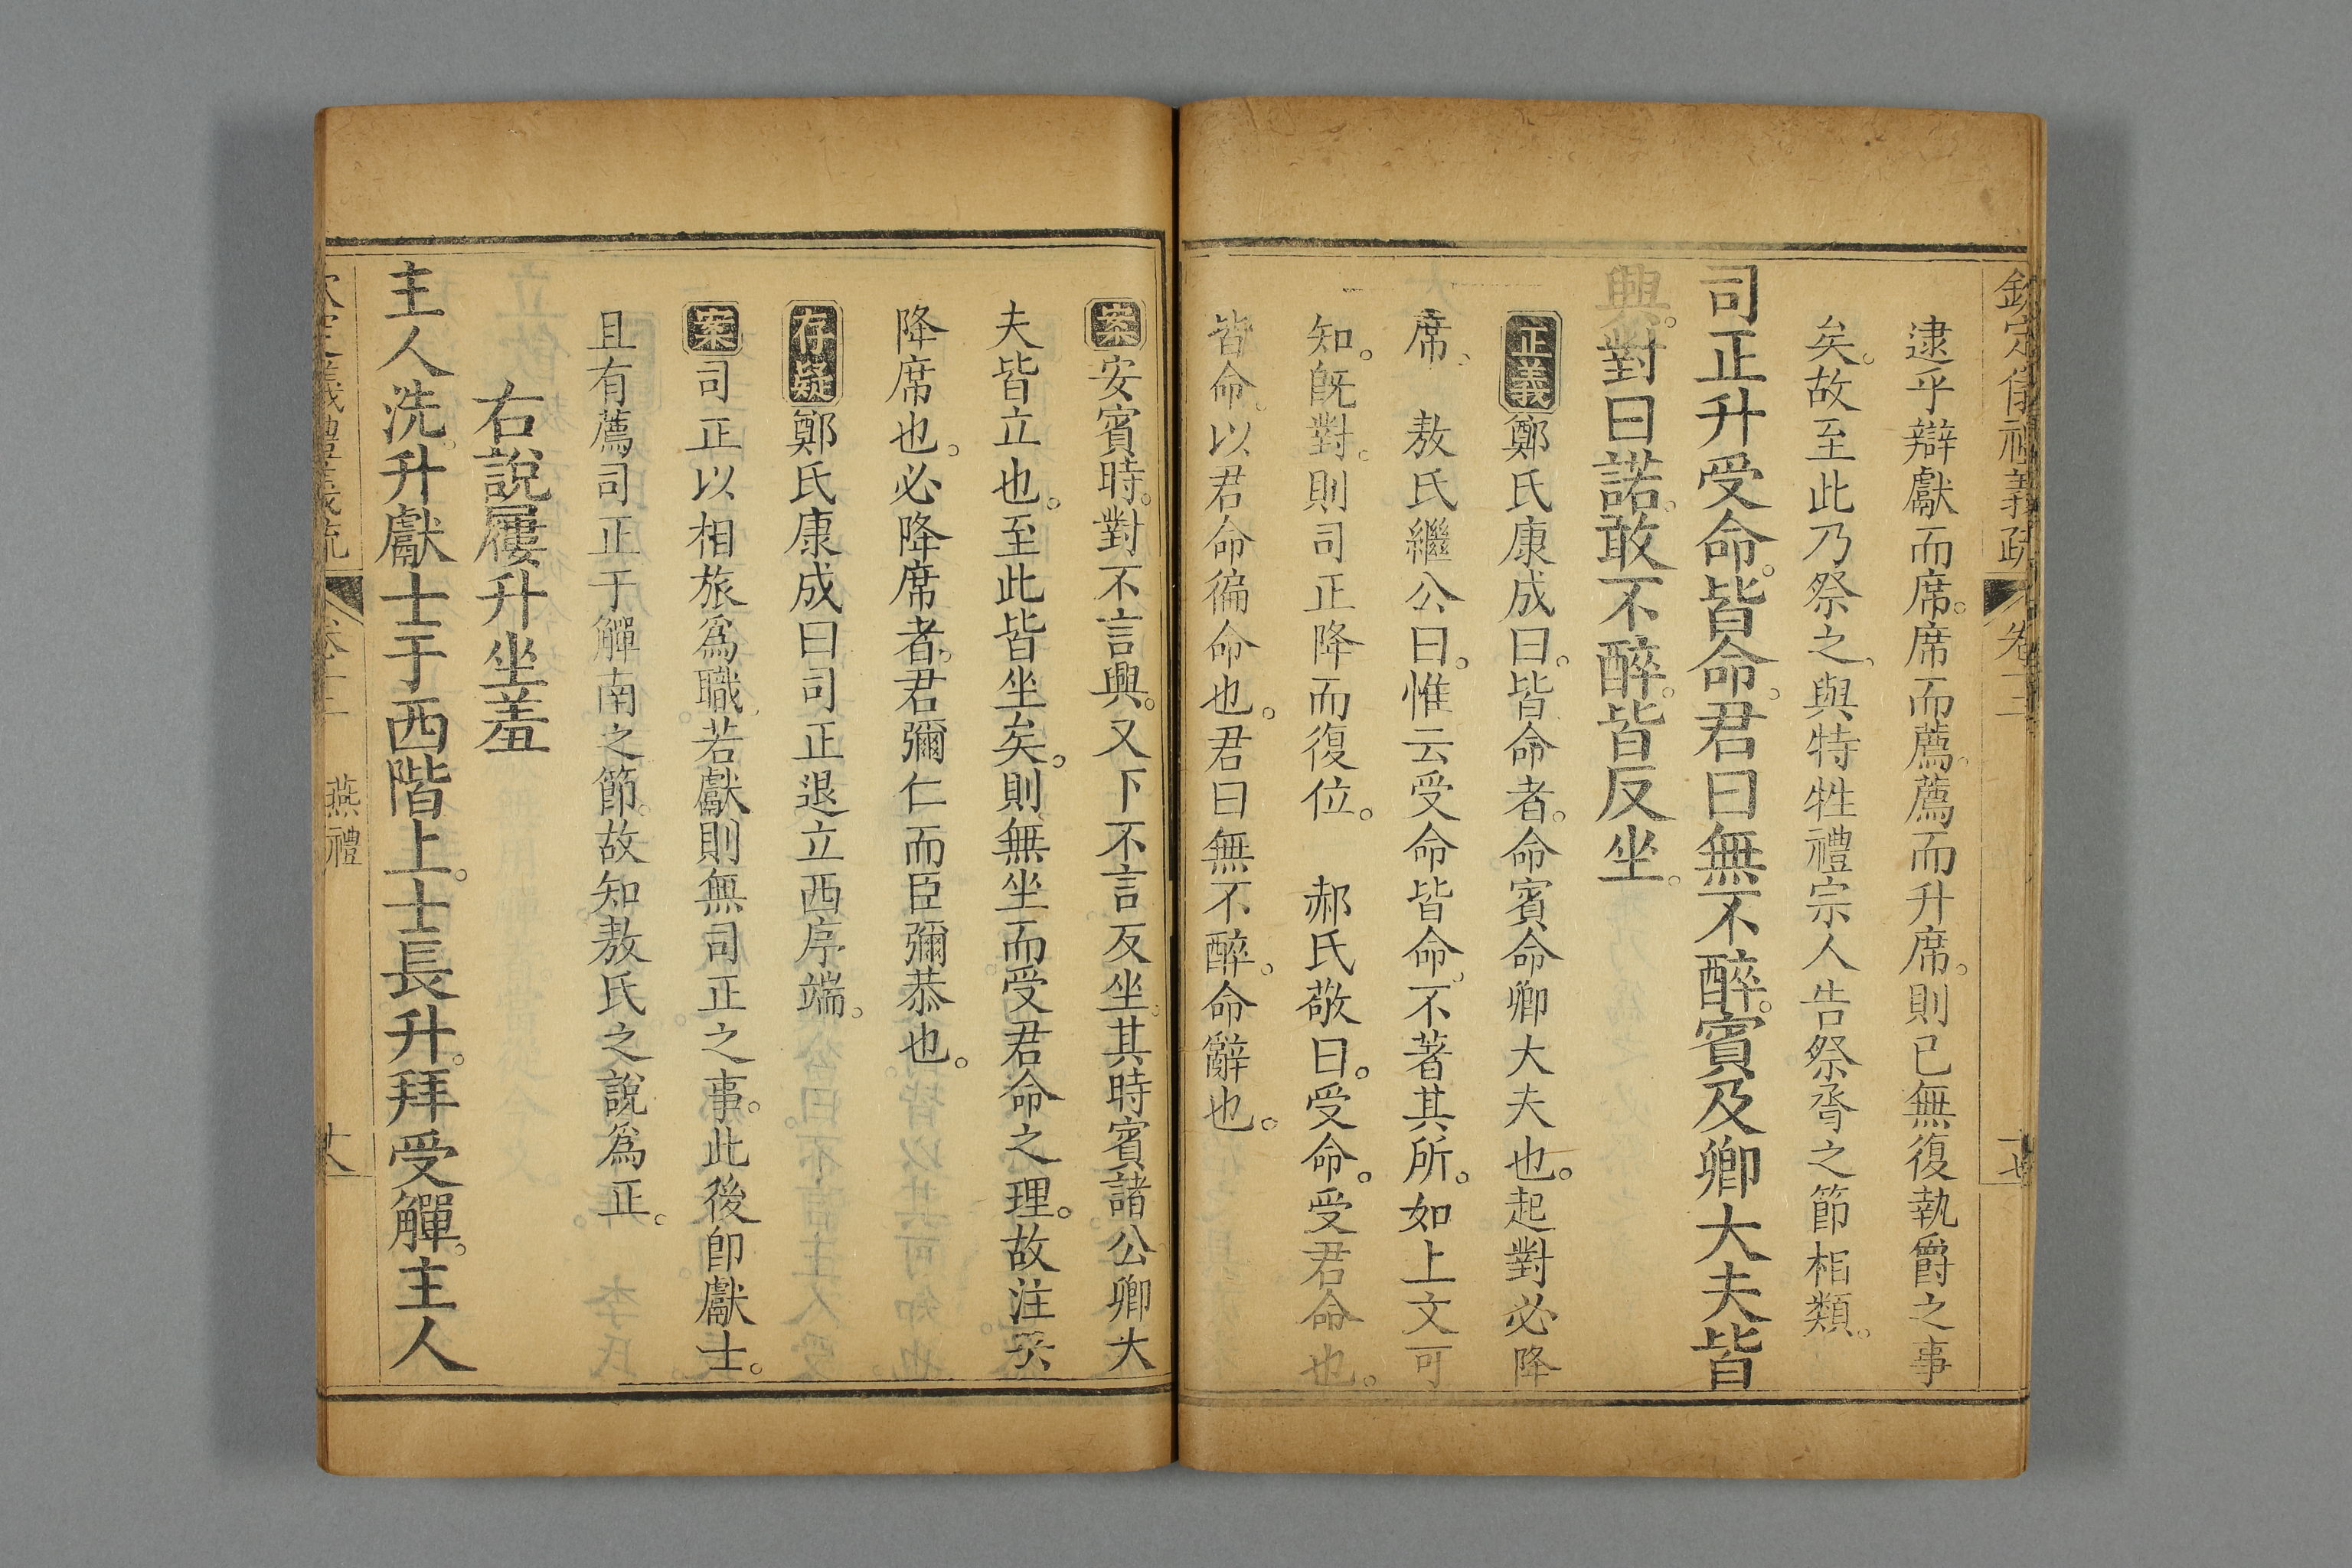 欽定儀禮義疏 卷十二
逮乎辯獻而席。席而薦。薦而升席。則已無復執爵之事
矣。故至此乃祭之、與特牲禮宗人告祭脀之節相類。
司正升受命。皆命。君曰無不醉。賓及卿大夫皆
興。對曰諾。敢不醉。皆反坐。
正義鄭氏康成曰。皆命者。命賓命卿大夫也。起對必降
席、 敖氏繼公曰。惟云受命皆命、不著其所。如上文可
知。旣對。則司正降而復位。 郝氏敬曰。受命。受君命也。
皆命。以君命徧命也。君曰無不醉。命辭也。
案安賓時。對不言興。又下不言反坐。其時賓諸公卿大
夫皆立也。至此皆坐矣。則無坐而受君命之理。故注云
降席也。必降席者。君彌仁而臣彌恭也。
存疑鄭氏康成曰司正退立西序端。
案司正以相旅爲職。若獻則無司正之事。此後卽獻士。
且有薦司正于觶南之節。故知敖氏之說爲正。
右說屨升坐羞
主人洗。升獻士于西階上。士長升。拜受觶。主人
欽定儀禮義疏 卷十二 燕禮